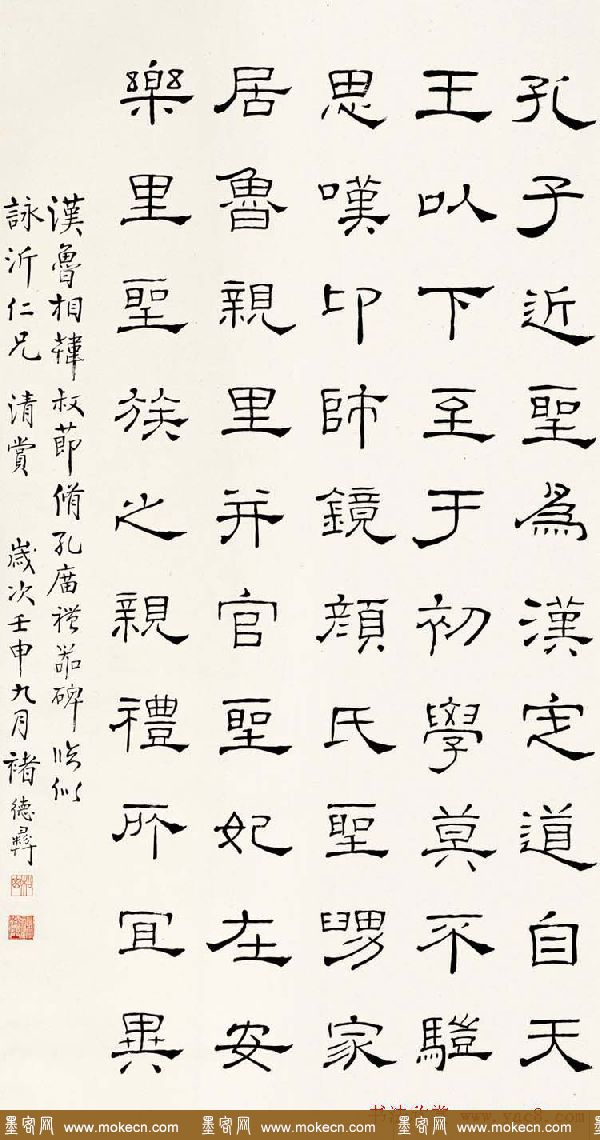 孔子近聖為漢定道自天
王以下至于初學莫不驥
思嘆卬師鏡顔氏聖舅家
居魯親里并官聖妃在安
樂里聖族之親禮所宜異
漢魯相韓叔節脩孔廟禮器碑 臨似
詠沂仁兄 清賞 歲次壬申九月 褚德彝
墨客网 www.mokecn.com 墨客网 www.mokecn.com 墨客网 www.mokecn.com 墨客网 www.mokecn.com